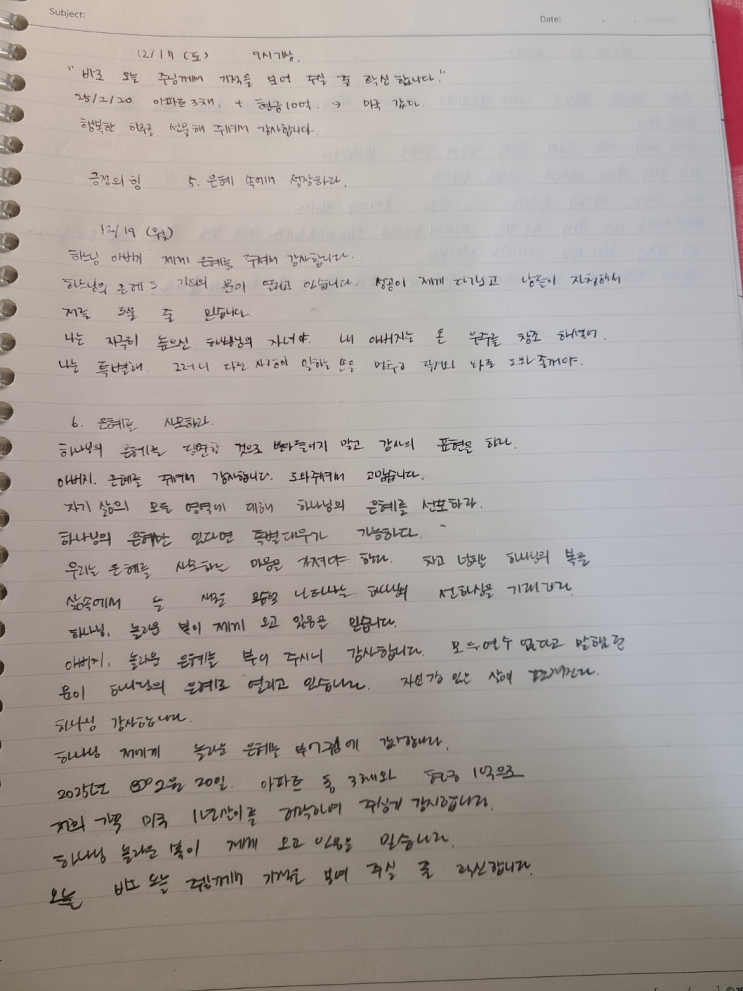 Subject:
Date: . .
12/17 (토) 9시기상.
"바로 오늘 주님께서 기적을 보여 주실 줄 확신합니다."
25/2/20 아파트 3채, + 현금 10억. → 미국 갔다.
행복한 하루를 선물해 주셔서 감사합니다.
긍정의 힘 5. 은혜 속에서 성장하라.
12/19 (월)
하나님 아버지 제게 은혜를 주셔서 감사합니다.
하나님의 은혜로 기회의 문이 열리고 있습니다. 성공이 제게 다가오고 남들이 자청해서
저를 도울 줄 믿습니다.
나는 지극히 높으신 하나님의 자녀야. 내 아버지는 온 우주를 창조 하셨어.
나는 특별해. 그러니 다른 사람이 일하는 손을 멈추고 바로 도와 줄꺼야.
6. 은혜를 사모하라.
하나님의 은혜를 당연한 것으로 받아들이지 말고 감사의 표현을 하라.
아버지. 은혜를 주셔서 감사합니다. 도와주셔서 고맙습니다.
자기 삶의 모든 영역에 대해 하나님의 은혜를 선포하라.
하나님의 은혜만 있다면 특별대우가 가능하다.
우리는 은혜를 사모하는 마음을 가져야 한다. 차고 넘치는 하나님의 복을
삶속에서 늘 새로운 모습으로 나타나는 하나님의 선하심을 기대하라.
하나님, 놀라운 복이 제게 오고 있음을 믿습니다.
아버지, 놀라운 은혜를 부어 주시니 감사합니다. 모두 열 수 없다고 말했던
문이 하나님의 은혜로 열리고 있습니다. 자신감 있는 삶이 펼쳐진다.
하나님 감사합니다.
하나님 저에게 놀라운 은혜를 부어주심에 감사합니다.
2025년 2월 20일. 아파트 총 3채와 현금 으로
저희 가족 미국 1년살이를 허락하여 주심에 감사합니다.
하나님 놀라운 복이 제게 오고 있음을 믿습니다.
오늘 바로 오늘 주님께서 기적을 보여 주실 줄 확신합니다.